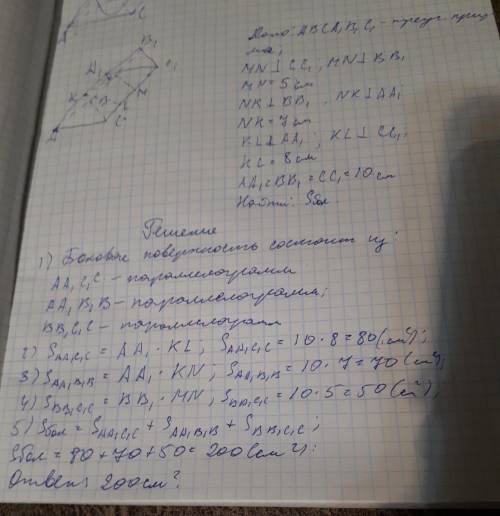 A₁
B₁
C₁
K
B
M
L
C
A
Дано: ABCA₁B₁C₁ – треуг. приз
ма;
MN ⊥ CC₁, MN ⊥ BB₁
MN = 5 см
NK ⊥ BB₁, NK ⊥ AA₁
NK = 7 см
KL ⊥ AA₁; KL ⊥ CC₁,
KL = 8 см
AA₁ = BB₁ = CC₁ = 10 см
Найти: Sбок.
Решение
1) Боковая поверхность состоит из:
AA₁C₁C – параллелограмм
AA₁B₁B – параллелограмм;
BB₁C₁C – параллелограмм
2) SAA₁C₁C = AA₁ · KL; SAA₁C₁C = 10 · 8 = 80 (см²);
3) SAA₁B₁B = AA₁ · KN; SAA₁B₁B = 10 · 7 = 70 (см²);
4) SBB₁C₁C = BB₁ · MN; SBB₁C₁C = 10 · 5 = 50 (см²);
5) Sбок = SAA₁C₁C + SAA₁B₁B + SBB₁C₁C;
Sбок = 80 + 70 + 50 = 200 (см²);
Ответ: 200 см².